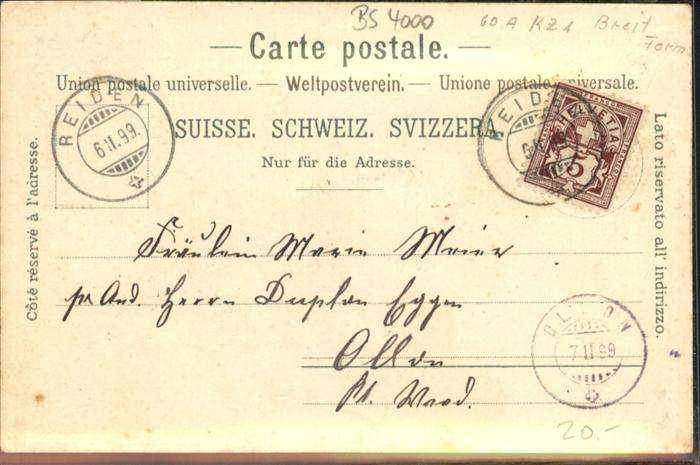 BS 4000
60 A KZ1 Breit
Form
— Carte postale. —
Union postale universelle. — Weltpostverein. — Unione postale universale.
SUISSE. SCHWEIZ. SVIZZERA.
Nur für die Adresse.
Côté réservé à l'adresse.
Lato riservato all' indirizzo.
REIDEN
6 II. 99.
REID
HELVETIA
5
Fräulein Marie Meier
pr Ad. Herrn Duplan Eggen
Ollon
Kt. Waad.
OLLON
7 II 99
20.-